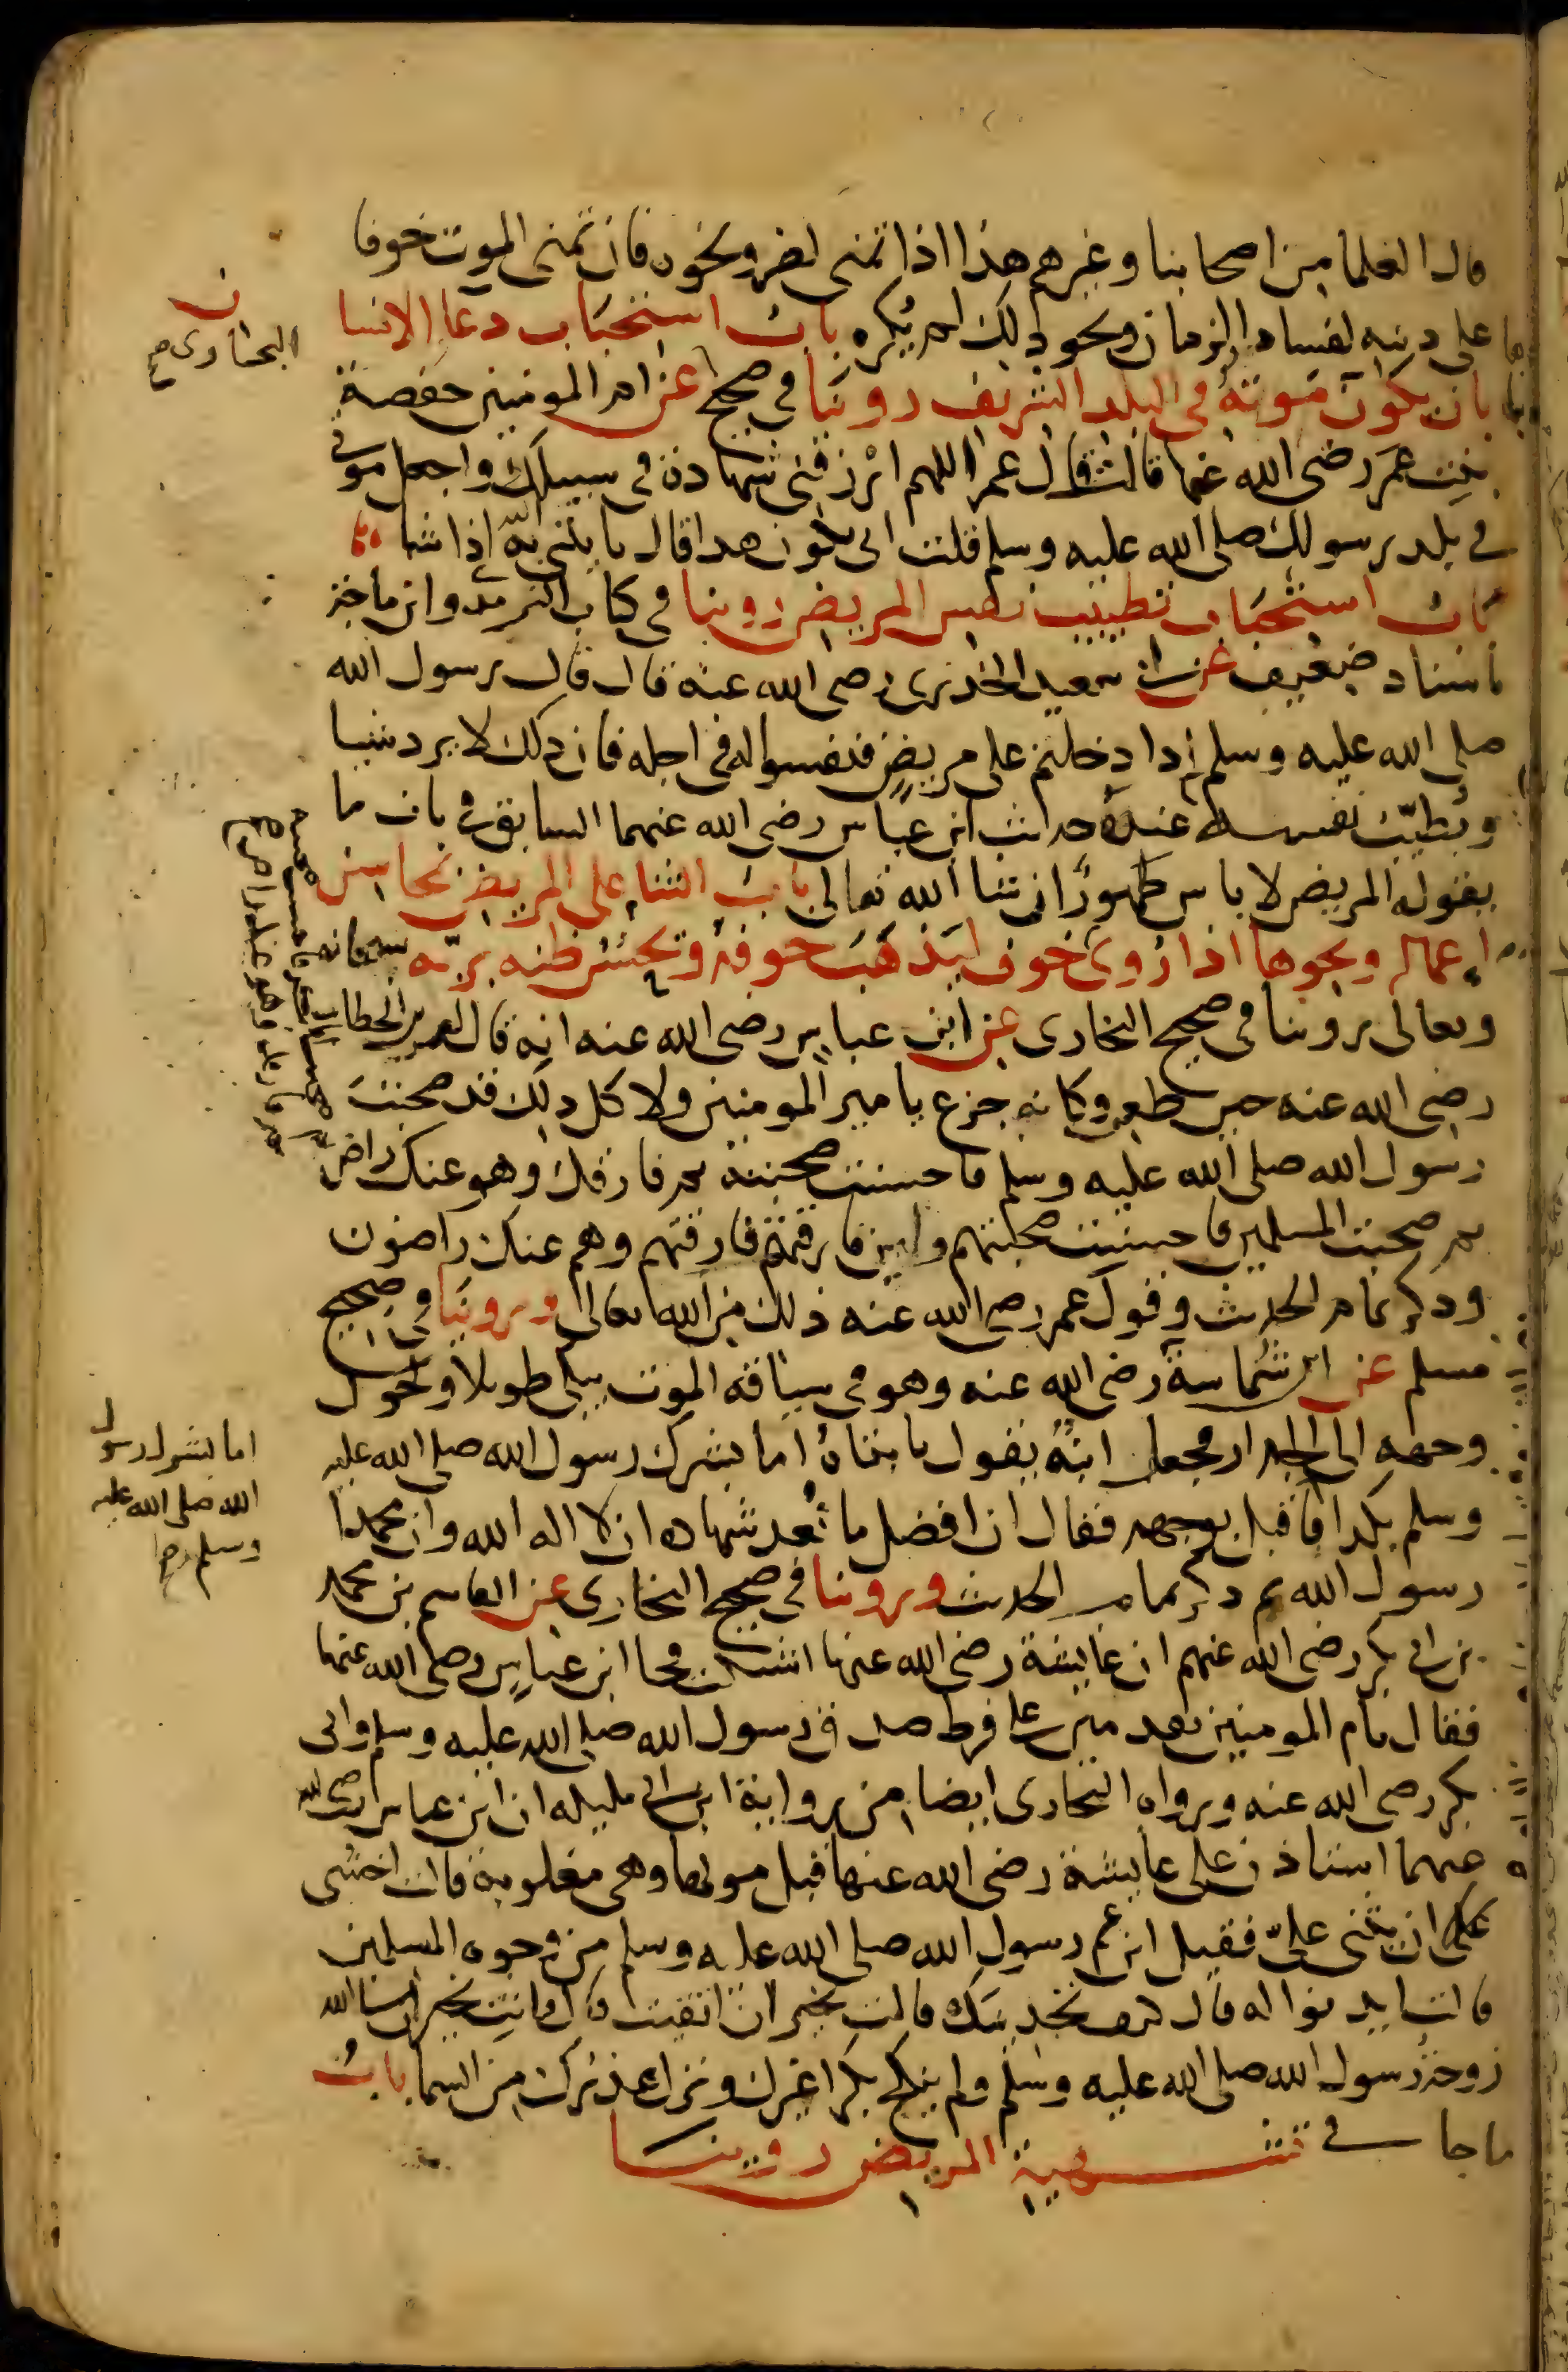 قال العلما من اصحابنا وغيرهم هذا اذا تمنى لضر ونحوه فان تمنى الموت خوفا
على دينه لفساد الزمان ونحو ذلك لم يكره باب استحباب دعا الانسان
بان يكون موته في البلد الشريف روينا في صحيح البخاري عن ام المومنين حفصة
بنت عمر رضي الله عنها قالت قال عمر اللهم ارزقني شهادة في سبيلك واجعل موتي
في بلد رسولك صلى الله عليه وسلم فقلت انى يكون هذا قال ياتيني به الله اذا شا
باب استحباب تطييب نفس المريض روينا في كتاب الترمذي وابن ماجة
باسناد ضعيف عن ابي سعيد الخدري رضي الله عنه قال قال رسول الله
صلى الله عليه وسلم اذا دخلتم على مريض فنفسوا له في اجله فان ذلك لا يرد شييا
ويطيب نفسه عنده حديث ابن عباس رضي الله عنهما السابق في باب ما
يقوله المريض لا باس طهورا ان شا الله تعالى باب الثناء على المريض بمحاسن
اعماله ونحوها اذا روى خوف ليذهب خوفه وتحسن ظنه بربه سبحانه
وتعالى روينا في صحيح البخاري عن ابن عباس رضي الله عنه انه قال لعمر بن الخطاب
رضي الله عنه حين طعن وكانه جزع يا مير المومنين ولا كل ذلك قد صحبت
رسول الله صلى الله عليه وسلم فاحسنت صحبته ثم فارقك وهو عنك راض
ثم صحبت المسلمين فاحسنت صحبتهم ولين فارقتهم فارقتهم وهم عنك راضون
وذكر تمام الحديث وقول عمر رضي الله عنه ذلك من الله تعالى وروينا في صحيح
مسلم عن ابن شماسة رضي الله عنه وهو في سياقه الموت يبكي طويلا وحول
وجهه الى الجدار فجعل ابنه يقول يا بتاه اما بشرك رسول الله صلى الله عليه
وسلم بكذا فاقبل بوجهه فقال ان افضل ما نعد شهادة ان لا اله الله وان محمدا
رسول الله ثم ذكر تمام الحديث وروينا في صحيح البخاري عن القاسم بن محمد
بن ابي بكر رضي الله عنهم ان عايشة رضي الله عنها اشتكت فجا ابن عباس رضي الله عنهما
فقال يا ام المومنين تقدمين على فرط صدق رسول الله صلى الله عليه وسلم وابي
بكر رضي الله عنه ورواه البخاري ايضا من رواية ابن ابي مليكه ان ابن عباس رضي الله
عنهما استاذن على عايشة رضي الله عنها قبل موتها وهي مغلوبة قالت اخشى
ان يثني علي فقيل ابن عم رسول الله صلى الله عليه وسلم من وجوه المسلمين
قالت ايذنوا له قال كيف تجدينك قالت بخير ان اتقيت قال فانت بخير ان شا الله
زوجة رسول الله صلى الله عليه وسلم ولم ينكح بكرا غيرك ونزل عذرك من السما باب
ما جا في تشهية المريض روينا
البخاري صح
اما بشرك رسول
الله صلى الله عليه
وسلم